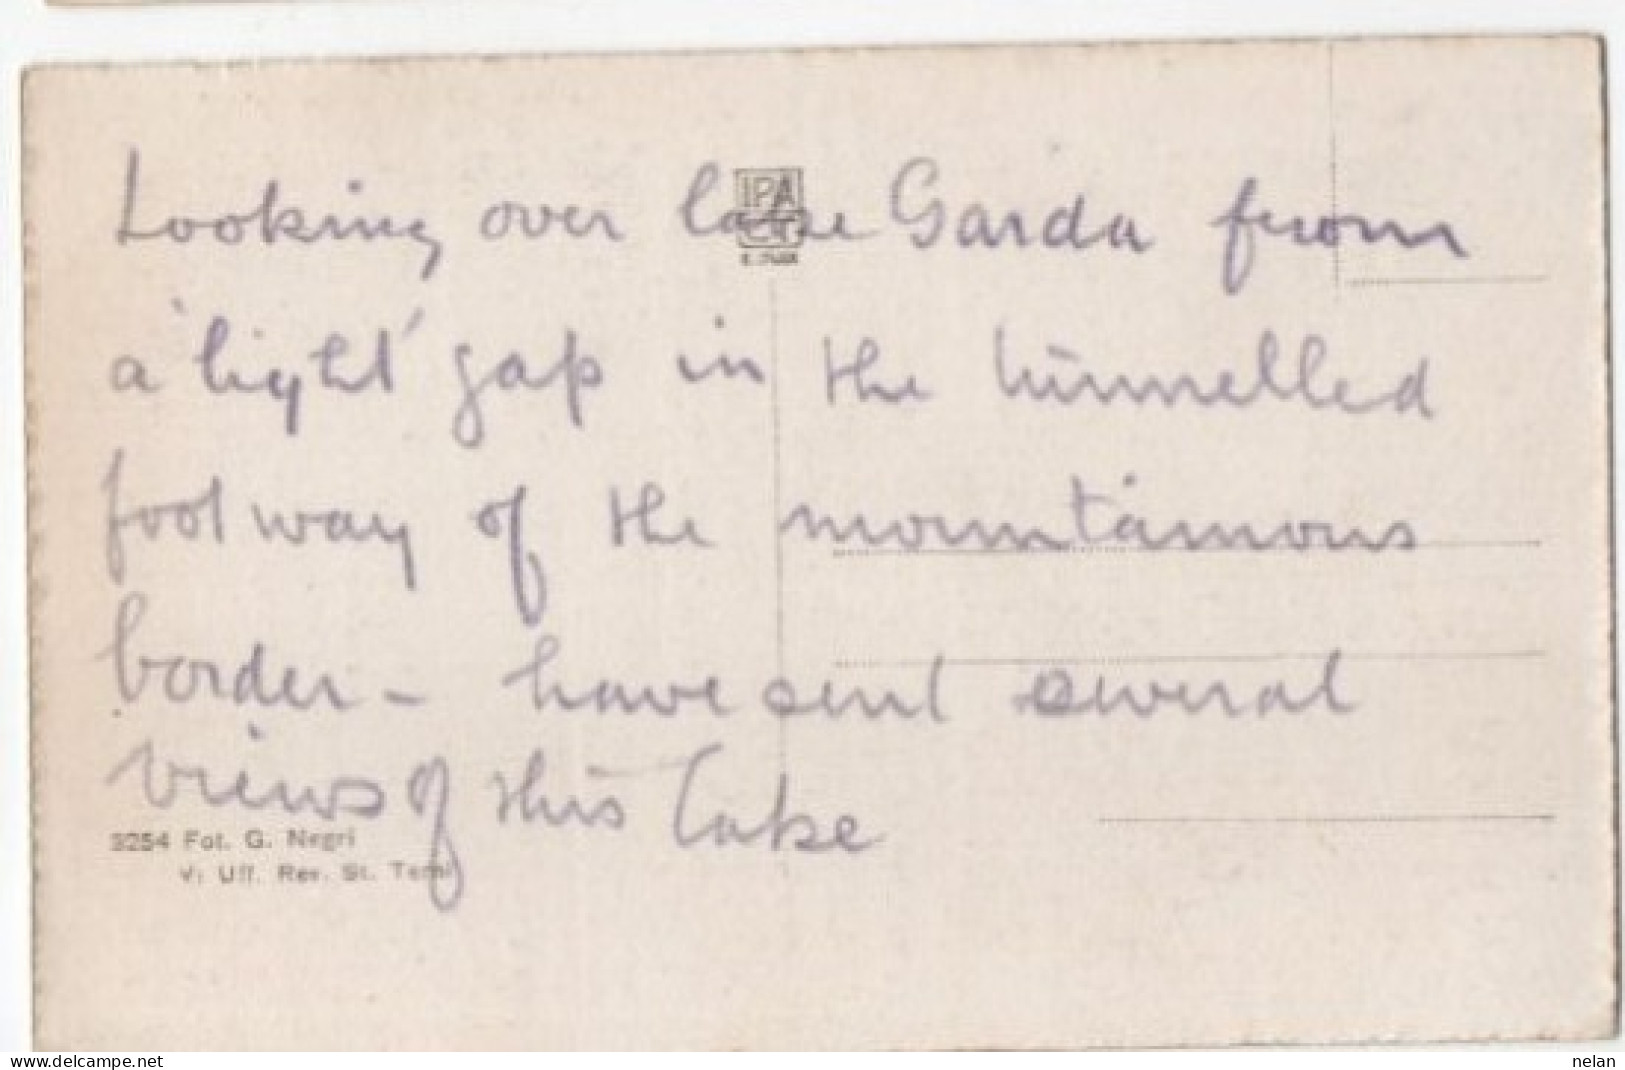 Looking over lake Garda from
a 'light' gap in the tunnelled
footway of the mountainous
border - have sent several
views of this lake
IPA
CT
3254 Fot. G. Negri
V: Uff. Rev. St. Terni
www.delcampe.net
nelan